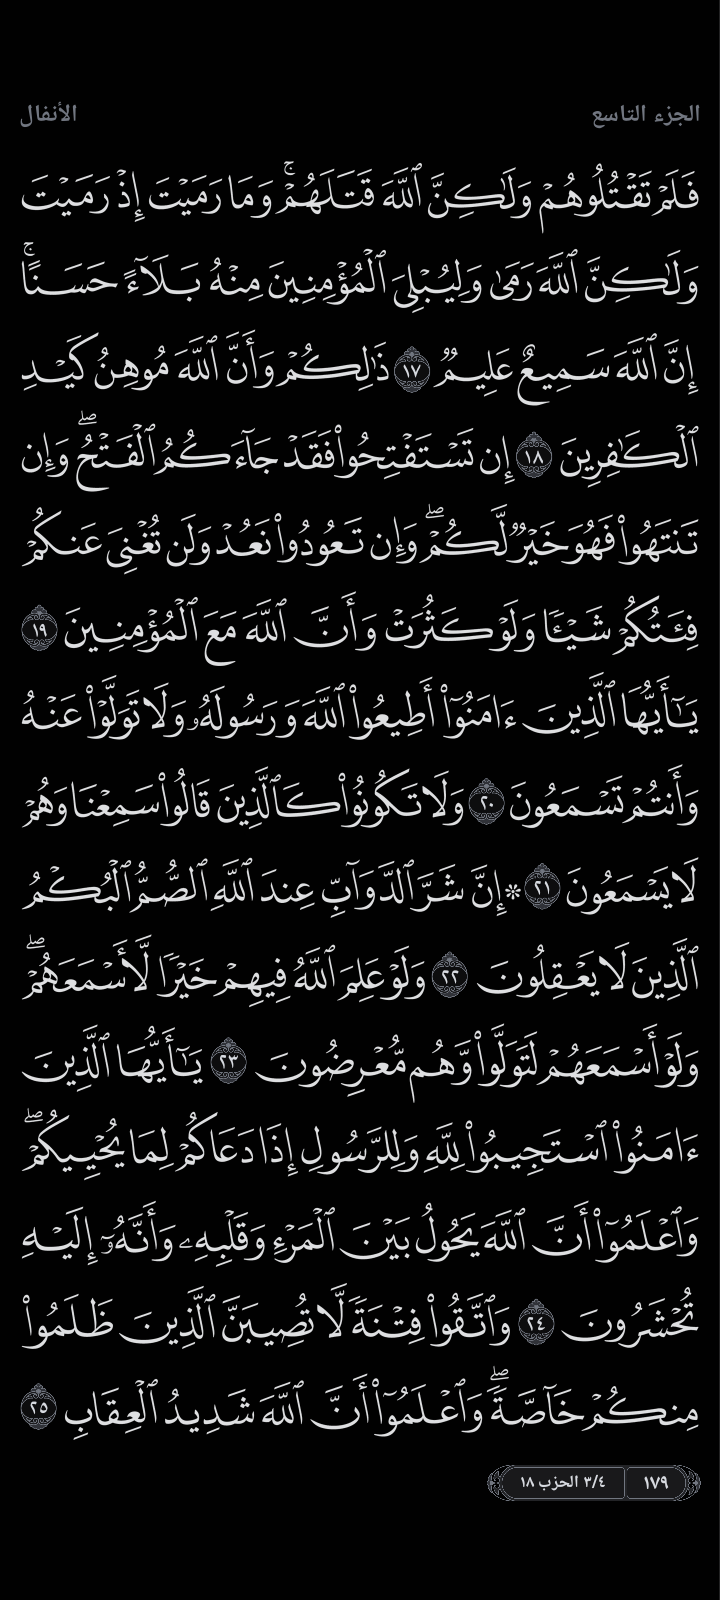 الجزء التاسع
الأنفال
فَلَمۡ تَقۡتُلُوهُمۡ وَلَٰكِنَّ ٱللَّهَ قَتَلَهُمۡۚ وَمَا رَمَيۡتَ إِذۡ رَمَيۡتَ
وَلَٰكِنَّ ٱللَّهَ رَمَىٰ وَلِيُبۡلِيَ ٱلۡمُؤۡمِنِينَ مِنۡهُ بَلَآءً حَسَنًاۚ
إِنَّ ٱللَّهَ سَمِيعٌ عَلِيمٞ ١٧ ذَٰلِكُمۡ وَأَنَّ ٱللَّهَ مُوهِنُ كَيۡدِ
ٱلۡكَٰفِرِينَ ١٨ إِن تَسۡتَفۡتِحُواْ فَقَدۡ جَآءَكُمُ ٱلۡفَتۡحُۖ وَإِن
تَنتَهُواْ فَهُوَ خَيۡرٞ لَّكُمۡۖ وَإِن تَعُودُواْ نَعُدۡ وَلَن تُغۡنِيَ عَنكُمۡ
فِئَتُكُمۡ شَيۡـٔٗا وَلَوۡ كَثُرَتۡ وَأَنَّ ٱللَّهَ مَعَ ٱلۡمُؤۡمِنِينَ ١٩
يَٰٓأَيُّهَا ٱلَّذِينَ ءَامَنُوٓاْ أَطِيعُواْ ٱللَّهَ وَرَسُولَهُۥ وَلَا تَوَلَّوۡاْ عَنۡهُ
وَأَنتُمۡ تَسۡمَعُونَ ٢٠ وَلَا تَكُونُواْ كَٱلَّذِينَ قَالُواْ سَمِعۡنَا وَهُمۡ
لَا يَسۡمَعُونَ ٢١ ۞ إِنَّ شَرَّ ٱلدَّوَآبِّ عِندَ ٱللَّهِ ٱلصُّمُّ ٱلۡبُكۡمُ
ٱلَّذِينَ لَا يَعۡقِلُونَ ٢٢ وَلَوۡ عَلِمَ ٱللَّهُ فِيهِمۡ خَيۡرٗا لَّأَسۡمَعَهُمۡۖ
وَلَوۡ أَسۡمَعَهُمۡ لَتَوَلَّواْ وَّهُم مُّعۡرِضُونَ ٢٣ يَٰٓأَيُّهَا ٱلَّذِينَ
ءَامَنُواْ ٱسۡتَجِيبُواْ لِلَّهِ وَلِلرَّسُولِ إِذَا دَعَاكُمۡ لِمَا يُحۡيِيكُمۡۖ
وَٱعۡلَمُوٓاْ أَنَّ ٱللَّهَ يَحُولُ بَيۡنَ ٱلۡمَرۡءِ وَقَلۡبِهِۦ وَأَنَّهُۥٓ إِلَيۡهِ
تُحۡشَرُونَ ٢٤ وَٱتَّقُواْ فِتۡنَةٗ لَّا تُصِيبَنَّ ٱلَّذِينَ ظَلَمُواْ
مِنكُمۡ خَآصَّةٗۖ وَٱعۡلَمُوٓاْ أَنَّ ٱللَّهَ شَدِيدُ ٱلۡعِقَابِ ٢٥
١٧٩
٣/٤ الحزب ١٨